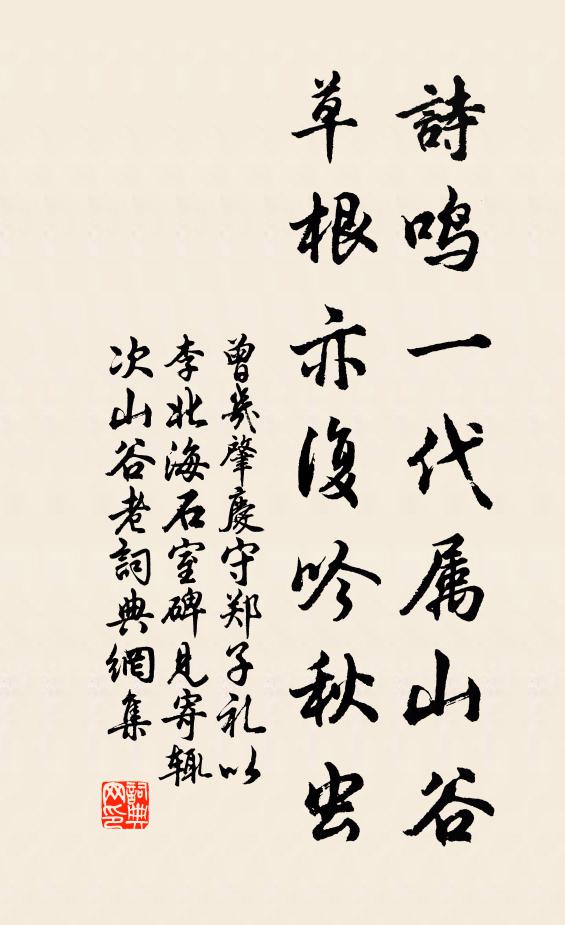 詩鸣一代属山谷
草根亦復吟秋虫
曾幾肇慶守郑子礼以
李北海石室碑見寄辄
次山谷老詞典網集
詞典网印